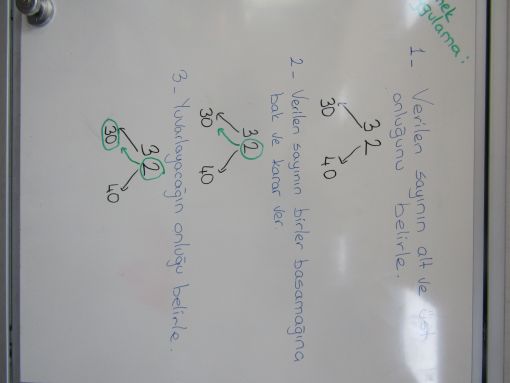 uygulama:
1- Verilen sayının alt ve üst
onluğunu belirle.
32
30 40
2- Verilen sayının birler basamağına
bak ve karar ver.
32
30 40
3- Yuvarlayacağın onluğu belirle.
32
30 40